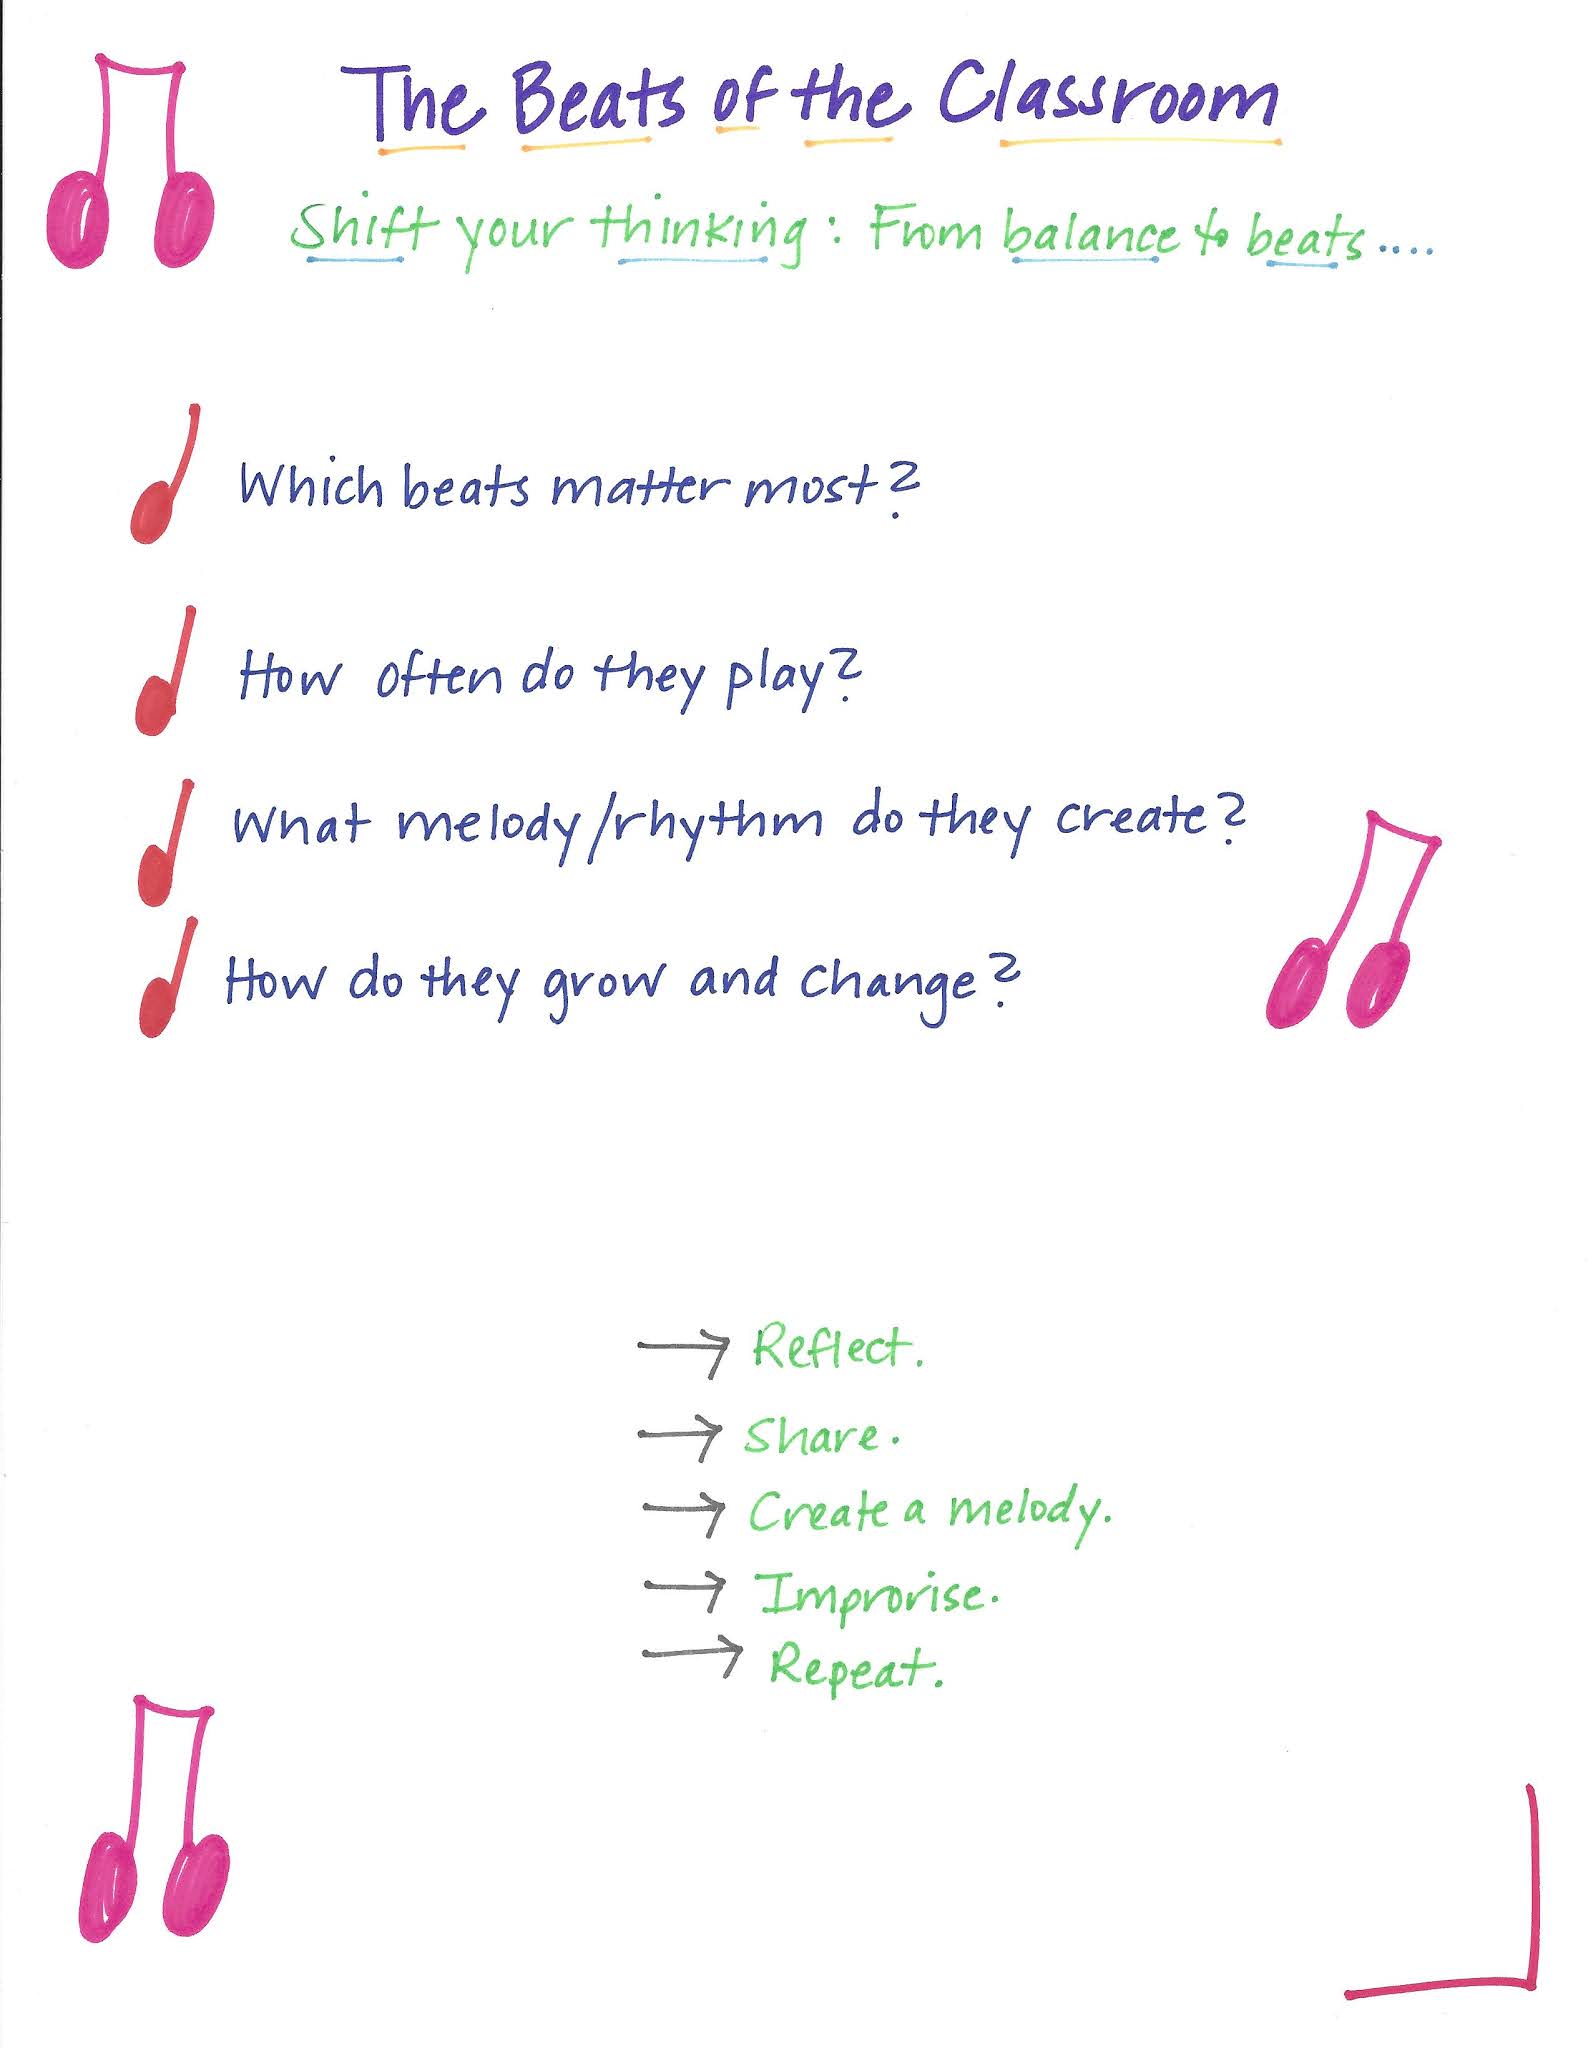 The Beats of the Classroom
Shift your thinking: From balance to beats....
Which beats matter most?
How often do they play?
What melody/rhythm do they create?
How do they grow and change?
→ Reflect.
→ Share.
→ Create a melody.
→ Improvise.
→ Repeat.